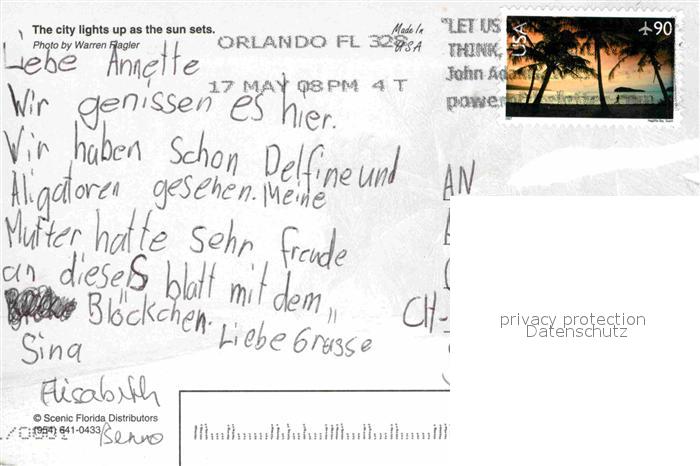 The city lights up as the sun sets.
Photo by Warren Flagler
Made In
USA
ORLANDO FL 328
17 MAY 08 PM 4 T
"LET US
THINK,
John Ada
power
USA
90
Liebe Annette
Wir genissen es hier.
Wir haben schon Delfine und
Aligatoren gesehen. Meine
Mutter hatte sehr freude
an dieseS blatt mit dem
Blöckchen.
Liebe Grüsse
Sina
Elisabeth
Benno
AN
CH-
privacy protection
Datenschutz
© Scenic Florida Distributors
(954) 641-0433